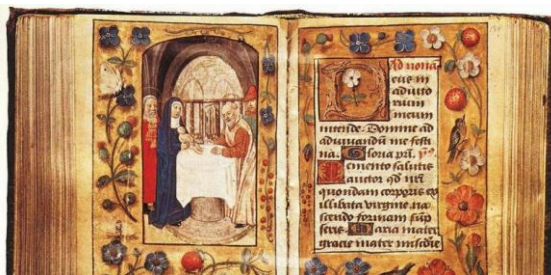 Ad nona
eus in
adiuto
rium
meum
intende. Domine ad
adiuuandū me festi
na. Gloria pri.
emento salutis
auctor qd nri
quondam corporis ex
illibata virgine na
scendo formam sūp
seris. Maria mater
gracie mater miscdie